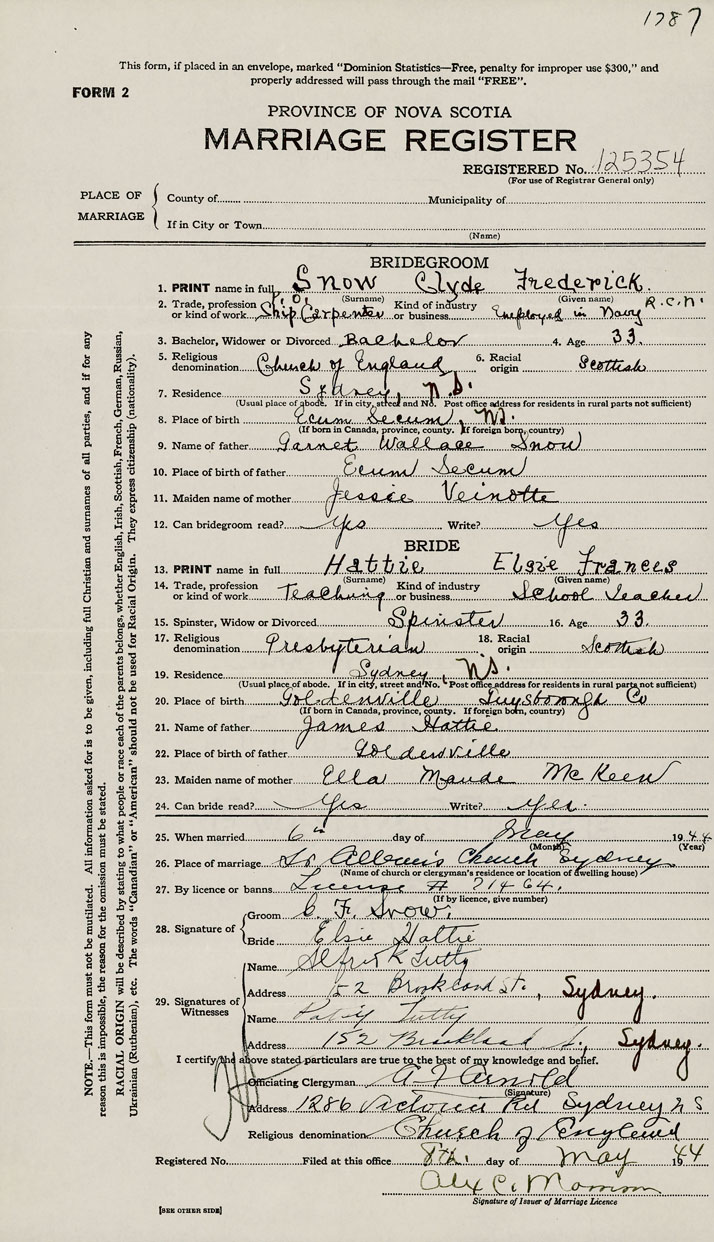 1787
This form, if placed in an envelope, marked "Dominion Statistics—Free, penalty for improper use $300," and
properly addressed will pass through the mail "FREE".
FORM 2
PROVINCE OF NOVA SCOTIA
MARRIAGE REGISTER
REGISTERED No. 125354
(For use of Registrar General only)
PLACE OF MARRIAGE
County of Municipality of
If in City or Town
(Name)
BRIDEGROOM
1. PRINT name in full Snow Clyde Frederick.
(Surname) (Given name)
2. Trade, profession or kind of work Ship Carpenter Kind of industry or business Employed in Navy R.C.N.
3. Bachelor, Widower or Divorced Bachelor 4. Age 33.
5. Religious denomination Church of England 6. Racial origin Scottish
7. Residence Sydney, N.S.
(Usual place of abode. If in city, street and No. Post office address for residents in rural parts not sufficient)
8. Place of birth Ecum Secum, NS.
(If born in Canada, province, county. If foreign born, country)
9. Name of father Garnet Wallace Snow
10. Place of birth of father Ecum Secum
11. Maiden name of mother Jessie Veinotte
12. Can bridegroom read? Yes Write? Yes
BRIDE
13. PRINT name in full Hattie Elsie Frances
(Surname) (Given name)
14. Trade, profession or kind of work Teaching Kind of industry or business School Teacher
15. Spinster, Widow or Divorced Spinster 16. Age 33.
17. Religious denomination Presbyterian 18. Racial origin Scottish
19. Residence Sydney, NS.
(Usual place of abode. If in city, street and No. Post office address for residents in rural parts not sufficient)
20. Place of birth Goldenville Guysborough Co
(If born in Canada, province, county. If foreign born, country)
21. Name of father James Hattie
22. Place of birth of father Goldenville
23. Maiden name of mother Ella Maude McKeen
24. Can bride read? Yes Write? Yes.
25. When married 6th day of May 1944
(Month) (Year)
26. Place of marriage St Albans Church Sydney
(Name of church or clergyman's residence or location of dwelling house)
27. By licence or banns License # 71464.
(If by licence, give number)
28. Signature of
Groom C. F. Snow.
Bride Elsie Hattie
29. Signatures of Witnesses
Name Tutty
Address 152 Brookland St., Sydney.
Name Tutty
Address 152 Brookland St, Sydney.
I certify the above stated particulars are true to the best of my knowledge and belief.
Officiating Clergyman A F Arnold
(Signature)
Address 1286 Victoria Rd Sydney NS
Religious denomination Church of England
Registered No. Filed at this office 8th. day of May 1944
Alex C.
Signature of Issuer of Marriage Licence
[SEE OTHER SIDE]
NOTE.—This form must not be mutilated. All information asked for is to be given, including full Christian and surnames of all parties, and if for any
reason this is impossible, the reason for the omission must be stated.
RACIAL ORIGIN will be described by stating to what people or race each of the parents belongs, whether English, Irish, Scottish, French, German, Russian,
Ukrainian (Ruthenian), etc. The words "Canadian" or "American" should not be used for Racial Origin. They express citizenship (nationality).